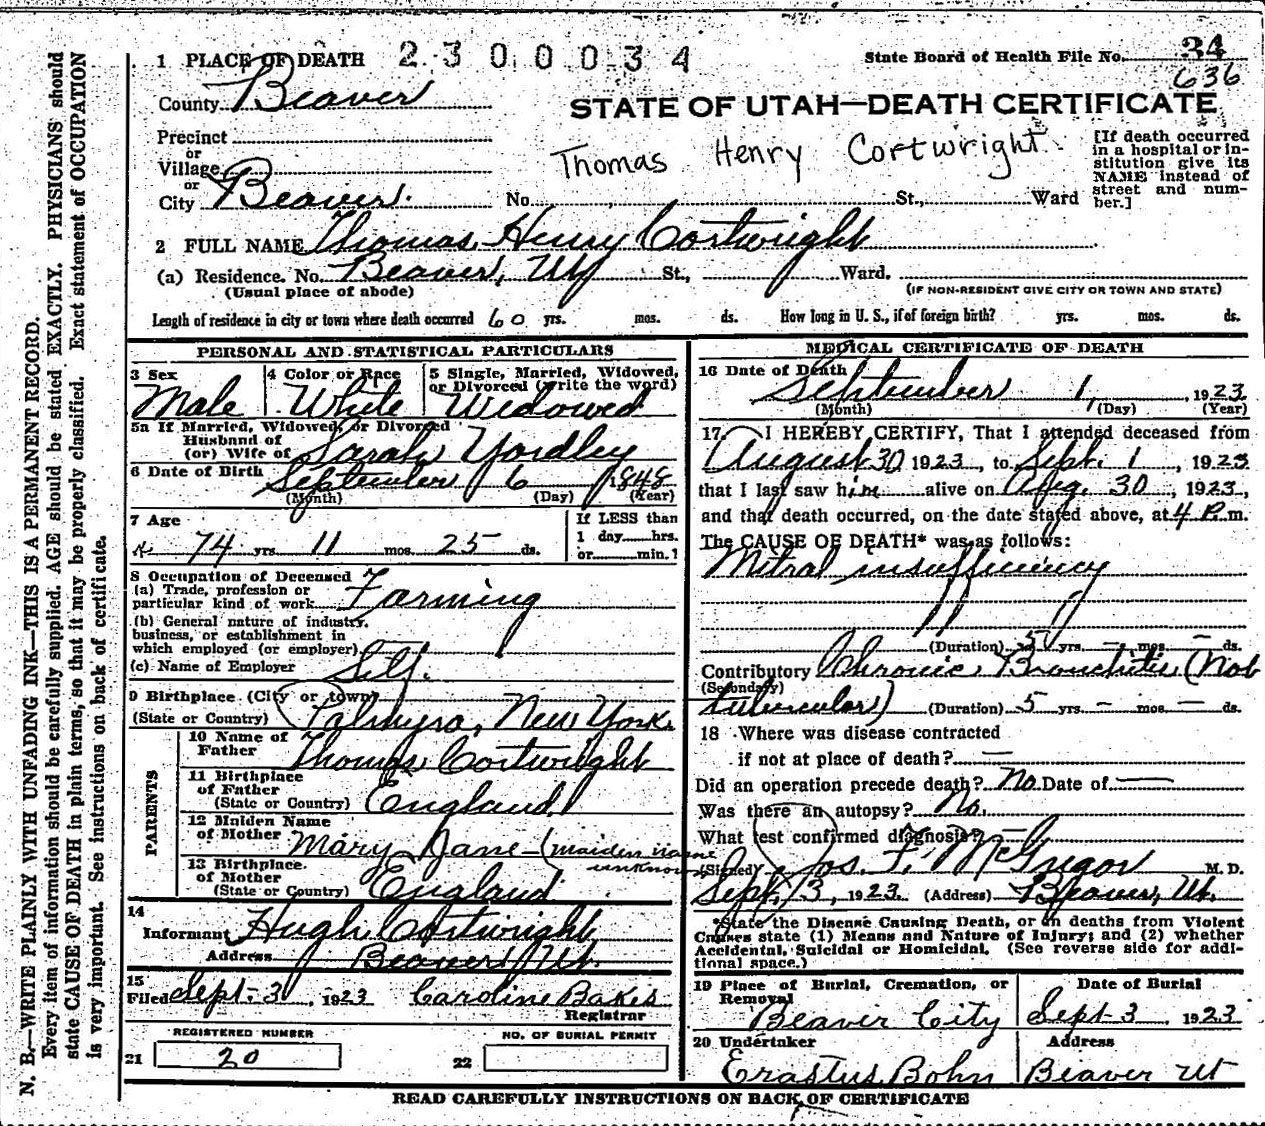 1 PLACE OF DEATH 2 3 0 0 0 3 4 State Board of Health File No. 34
636
County Beaver
STATE OF UTAH—DEATH CERTIFICATE
Precinct
or
Village
or
City Beaver. No. St., Ward
Thomas Henry Cortwright
[If death occurred
in a hospital or in-
stitution give its
NAME instead of
street and num-
ber.]
2 FULL NAME Thomas Henry Cortwright
(a) Residence. No. Beaver, Ut St., Ward.
(Usual place of abode) (IF NON-RESIDENT GIVE CITY OR TOWN AND STATE)
Length of residence in city or town where death occurred 60 yrs. mos. ds. How long in U. S., if of foreign birth? yrs. mos. ds.
PERSONAL AND STATISTICAL PARTICULARS
3 Sex 4 Color or Race 5 Single, Married, Widowed,
or Divorced (write the word)
Male White Widowed
5a If Married, Widowed, or Divorced
Husband of
(or) Wife of Sarah Yardley
6 Date of Birth September 6 1848
(Month) (Day) (Year)
7 Age If LESS than
1 day hrs.
74 yrs 11 mos. 25 ds. or min.?
8 Occupation of Deceased
(a) Trade, profession or
particular kind of work Farming
(b) General nature of industry,
business, or establishment in
which employed (or employer)
(c) Name of Employer Self.
9 Birthplace (City or town)
(State or Country) Palmyra, New York.
PARENTS
10 Name of
Father Thomas Cortwright
11 Birthplace
of Father
(State or Country) England
12 Maiden Name
of Mother Mary Jane - (maiden name
unknown)
13 Birthplace
of Mother
(State or Country) England
14
Informant Hugh Cortwright
Address Beaver, Ut.
15
Filed Sept. 3, 1923 Caroline Bakes
Registrar
REGISTERED NUMBER NO. OF BURIAL PERMIT
21 20 22
MEDICAL CERTIFICATE OF DEATH
16 Date of Death
September 1, 1923
(Month) (Day) (Year)
17. I HEREBY CERTIFY, That I attended deceased from
August 30 1923, to Sept. 1, 1923
that I last saw him alive on Aug. 30, 1923,
and that death occurred, on the date stated above, at 4 P. m.
The CAUSE OF DEATH* was as follows:
Mitral insufficiency
(Duration) 5 yrs. - mos. - ds.
Contributory Chronic Bronchitis (Not
(Secondary)
tubercular) (Duration) 5 yrs. - mos. - ds.
18 Where was disease contracted
if not at place of death? —
Did an operation precede death? No Date of —
Was there an autopsy? No.
What test confirmed diagnosis? —
(Signed) Jos. F. McGregor M. D.
Sept. 3, 1923 (Address) Beaver, Ut.
*State the Disease Causing Death, or in deaths from Violent
Causes state (1) Means and Nature of Injury; and (2) whether
Accidental, Suicidal or Homicidal. (See reverse side for addi-
tional space.)
19 Place of Burial, Cremation, or
Removal Date of Burial
Beaver City Sept 3, 1923
20 Undertaker Address
Erastus Bohn Beaver Ut
READ CAREFULLY INSTRUCTIONS ON BACK OF CERTIFICATE
N. B.—WRITE PLAINLY WITH UNFADING INK—THIS IS A PERMANENT RECORD.
Every item of information should be carefully supplied. AGE should be stated EXACTLY. PHYSICIANS should
state CAUSE OF DEATH in plain terms, so that it may be properly classified. Exact statement of OCCUPATION
is very important. See instructions on back of certificate.